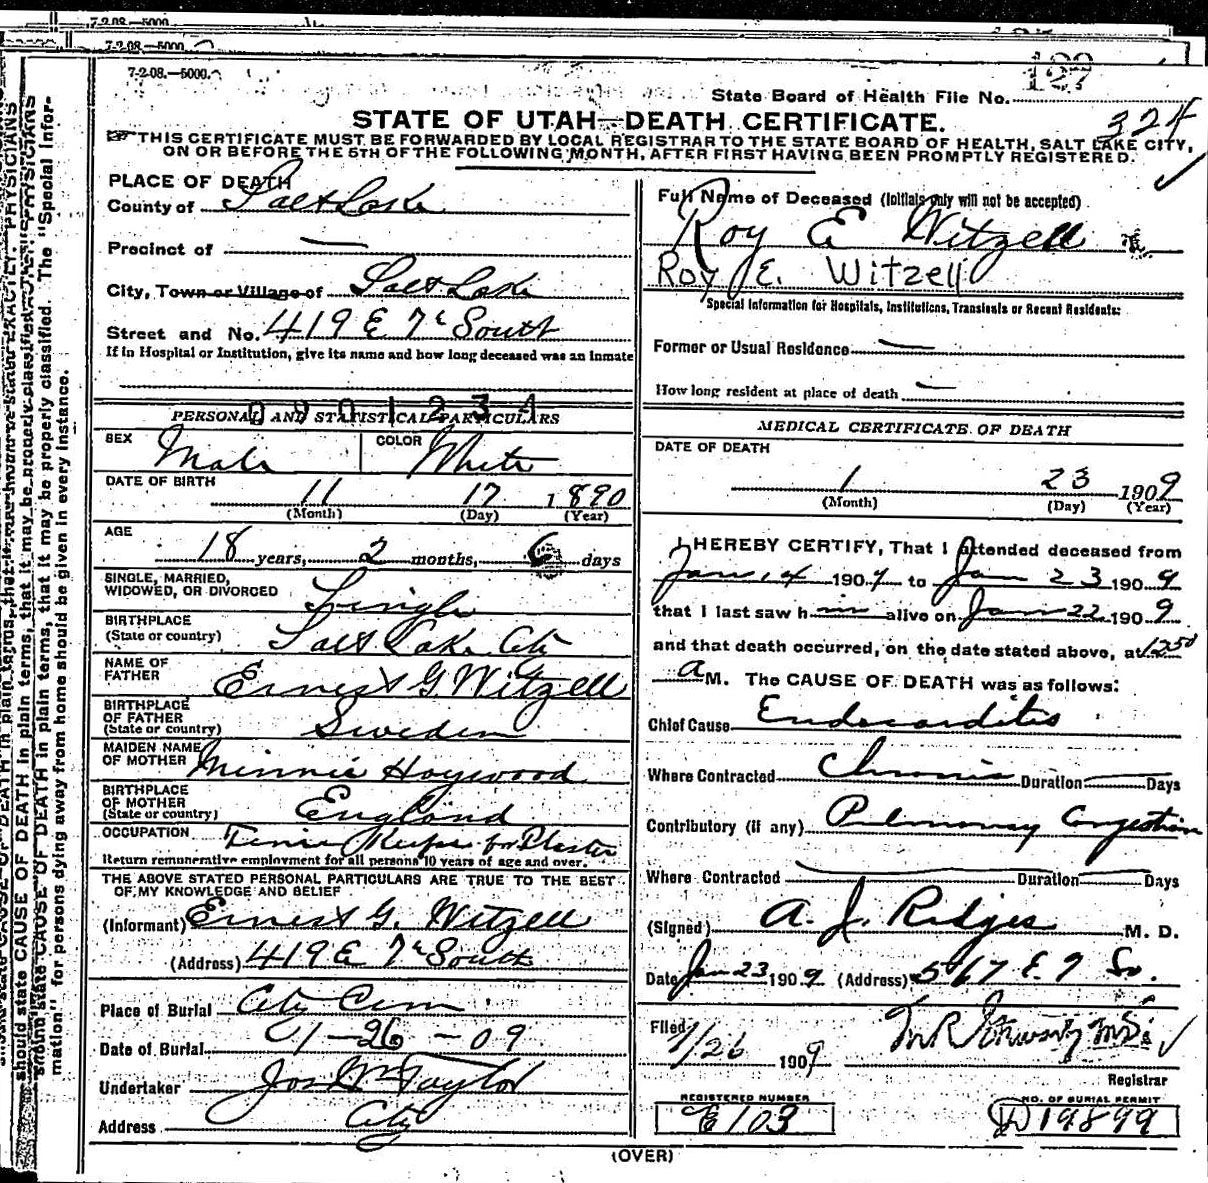 7-2-08.—5000.
7-2-08.—5000
7-2-08.—5000.
127
State Board of Health File No.
324
STATE OF UTAH—DEATH CERTIFICATE.
THIS CERTIFICATE MUST BE FORWARDED BY LOCAL REGISTRAR TO THE STATE BOARD OF HEALTH, SALT LAKE CITY,
ON OR BEFORE THE 5TH OF THE FOLLOWING MONTH, AFTER FIRST HAVING BEEN PROMPTLY REGISTERED.
PLACE OF DEATH
County of Salt Lake
Precinct of —
City, Town or Village of Salt Lake
Street and No. 419 E 7th South
If in Hospital or Institution, give its name and how long deceased was an inmate
0901234
PERSONAL AND STATISTICAL PARTICULARS
SEX Male COLOR White
DATE OF BIRTH 11 17 1890
(Month) (Day) (Year)
AGE
18 years, 2 months, 6 days
SINGLE, MARRIED,
WIDOWED, OR DIVORCED Single
BIRTHPLACE
(State or country) Salt Lake City
NAME OF
FATHER Ernest G. Witzell
BIRTHPLACE
OF FATHER
(State or country) Sweden
MAIDEN NAME
OF MOTHER Minnie Haywood
BIRTHPLACE
OF MOTHER
(State or country) England
OCCUPATION Time Keeper for Plaster
Return remunerative employment for all persons 10 years of age and over.
THE ABOVE STATED PERSONAL PARTICULARS ARE TRUE TO THE BEST
OF MY KNOWLEDGE AND BELIEF
(Informant) Ernest G. Witzell
(Address) 419 E 7th South
Place of Burial City Cem
Date of Burial 1-26-09
Undertaker Jos Wm Taylor
Address City
Full Name of Deceased (Initials only will not be accepted)
Roy E Witzell
Roy E. Witzell
Special Information for Hospitals, Institutions, Transients or Recent Residents:
Former or Usual Residence —
How long resident at place of death —
MEDICAL CERTIFICATE OF DEATH
DATE OF DEATH
1 23 1909
(Month) (Day) (Year)
I HEREBY CERTIFY, That I attended deceased from
Jan 14 1909 to Jan 23 1909
that I last saw him alive on Jan 22 1909
and that death occurred, on the date stated above, at 1250
A M. The CAUSE OF DEATH was as follows:
Chief Cause Endocarditis
Where Contracted Chronic Duration — Days
Contributory (if any) Pulmonary Congestion
Where Contracted — Duration — Days
(Signed) A. J. Ridges M. D.
Date Jan 23 1909 (Address) 567 E. 7 So.
Filed 1/26 1909
Registrar
REGISTERED NUMBER
E103
NO. OF BURIAL PERMIT
D19899
(OVER)
should state CAUSE OF DEATH in plain terms, that it may be properly classified. The "Special Infor-
mation" for persons dying away from home should be given in every instance.